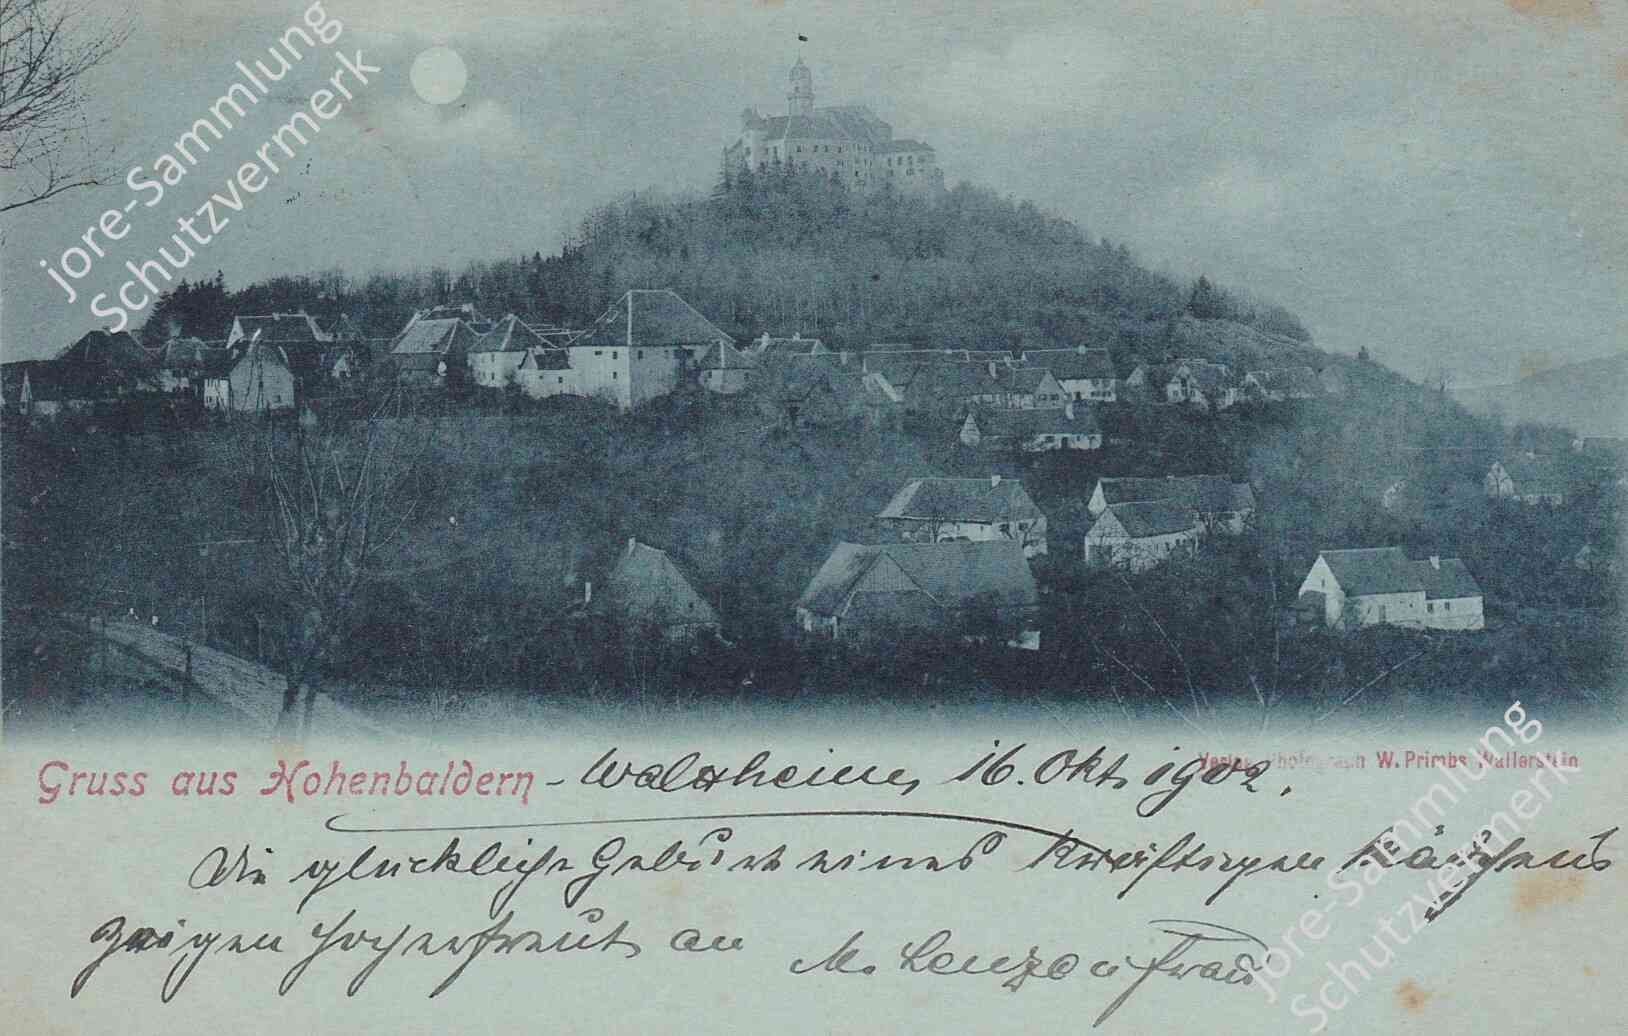 jore-Sammlung
Schutzvermerk
Gruss aus Hohenbaldern - Walxheim, 16. Okt. 1902.
Verlag Photograph W. Primbs Wallerstein
Die glückliche Geburt eines kräftigen
zeigen hocherfreut an
M. u Frau
jore-Sammlung
Schutzvermerk